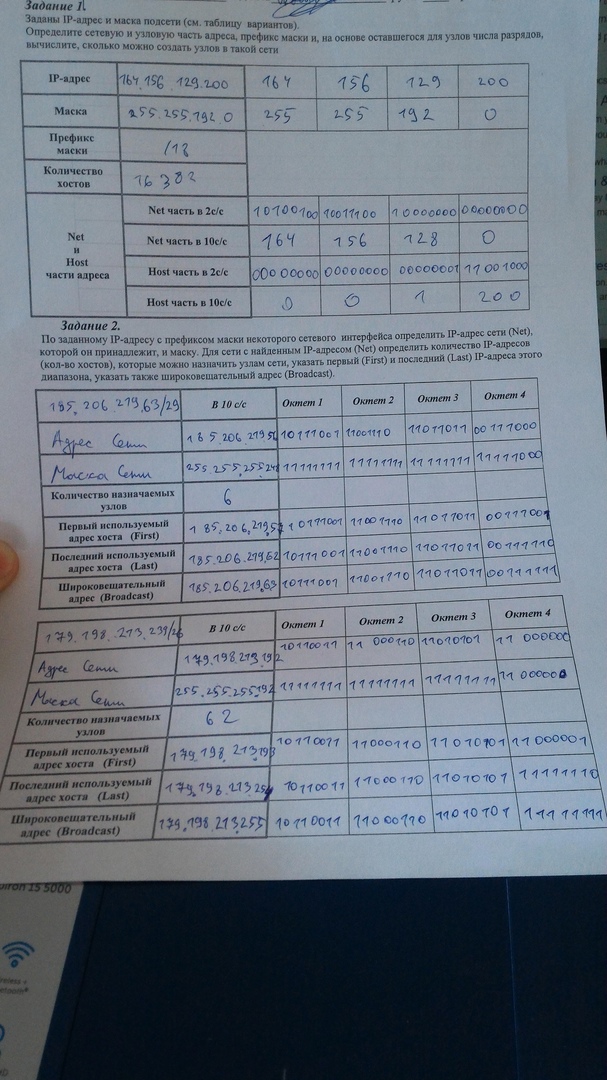 Задание 1.
Заданы IP-адрес и маска подсети (см. таблицу вариантов).
Определите сетевую и узловую часть адреса, префикс маски и, на основе оставшегося для узлов числа разрядов,
вычислите, сколько можно создать узлов в такой сети
IP-адрес 164.156.129.200 164 156 129 200
Маска 255.255.192.0 255 255 192 0
Префикс маски /18
Количество хостов 16382
Net и Host части адреса
Net часть в 2с/с 10100100 10011100 10000000 00000000
Net часть в 10с/с 164 156 128 0
Host часть в 2с/с 00000000 00000000 00000001 11001000
Host часть в 10с/с 0 0 1 200
Задание 2.
По заданному IP-адресу с префиксом маски некоторого сетевого интерфейса определить IP-адрес сети (Net),
которой он принадлежит, и маску. Для сети с найденным IP-адресом (Net) определить количество IP-адресов
(кол-во хостов), которые можно назначить узлам сети, указать первый (First) и последний (Last) IP-адреса этого
диапазона, указать также широковещательный адрес (Broadcast).
185.206.219.63/29 В 10 с/с Октет 1 Октет 2 Октет 3 Октет 4
Адрес Сети 185.206.219.56 10111001 11001110 11011011 00111000
Маска Сети 255.255.255.248 11111111 11111111 11111111 11111000
Количество назначаемых узлов 6
Первый используемый адрес хоста (First) 185.206.219.57 10111001 11001110 11011011 00111001
Последний используемый адрес хоста (Last) 185.206.219.62 10111001 11001110 11011011 00111110
Широковещательный адрес (Broadcast) 185.206.219.63 10111001 11001110 11011011 00111111
179.198.213.239/26 В 10 с/с Октет 1 Октет 2 Октет 3 Октет 4
Адрес Сети 179.198.213.192 10110011 11000110 11010101 11000000
Маска Сети 255.255.255.192 11111111 11111111 11111111 11000000
Количество назначаемых узлов 62
Первый используемый адрес хоста (First) 179.198.213.193 10110011 11000110 11010101 11000001
Последний используемый адрес хоста (Last) 179.198.213.254 10110011 11000110 11010101 11111110
Широковещательный адрес (Broadcast) 179.198.213.255 10110011 11000110 11010101 11111111
15 5000